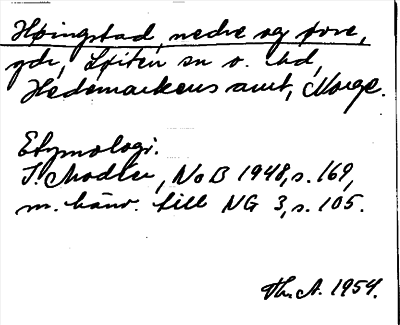 Høingstad, nedre og øvre,
gdr, Løiten sn o. hd,
Hedemarkens amt, Norge.
Etymologi.
I. Modéer, NoB 1948, s. 169,
m. hänv. till NG 3, s. 105.
Th. A. 1954.